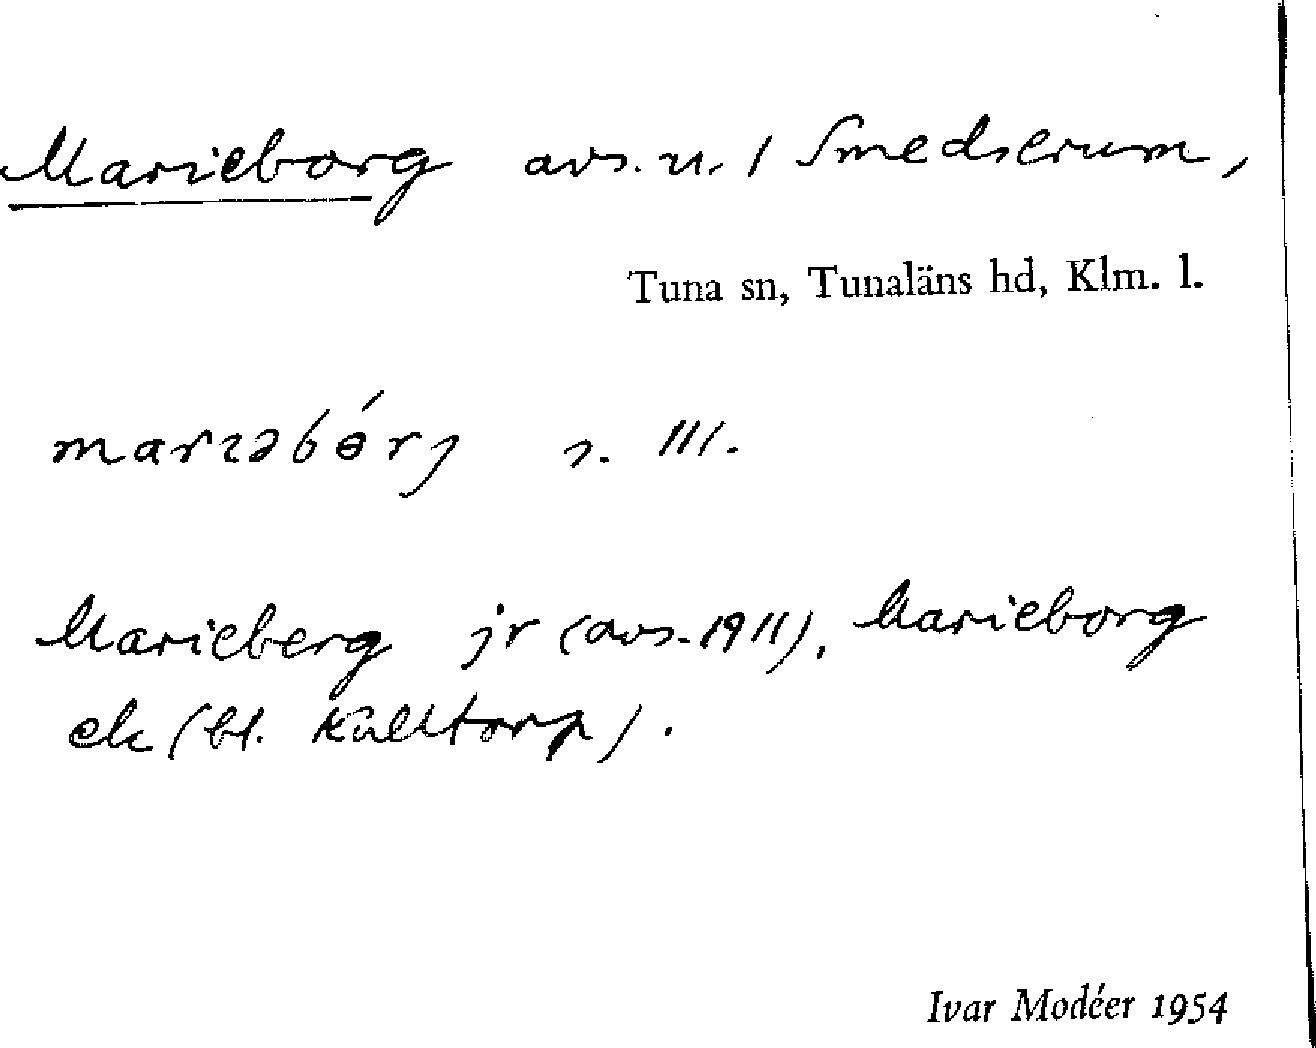 Marieborg avs. u. 1 Smedserum,
Tuna sn, Tunaläns hd, Klm. l.
s. III.
Marieberg jr (avs. 1911), Marieborg
ek (bl. Kulltorp).
Ivar Modéer 1954